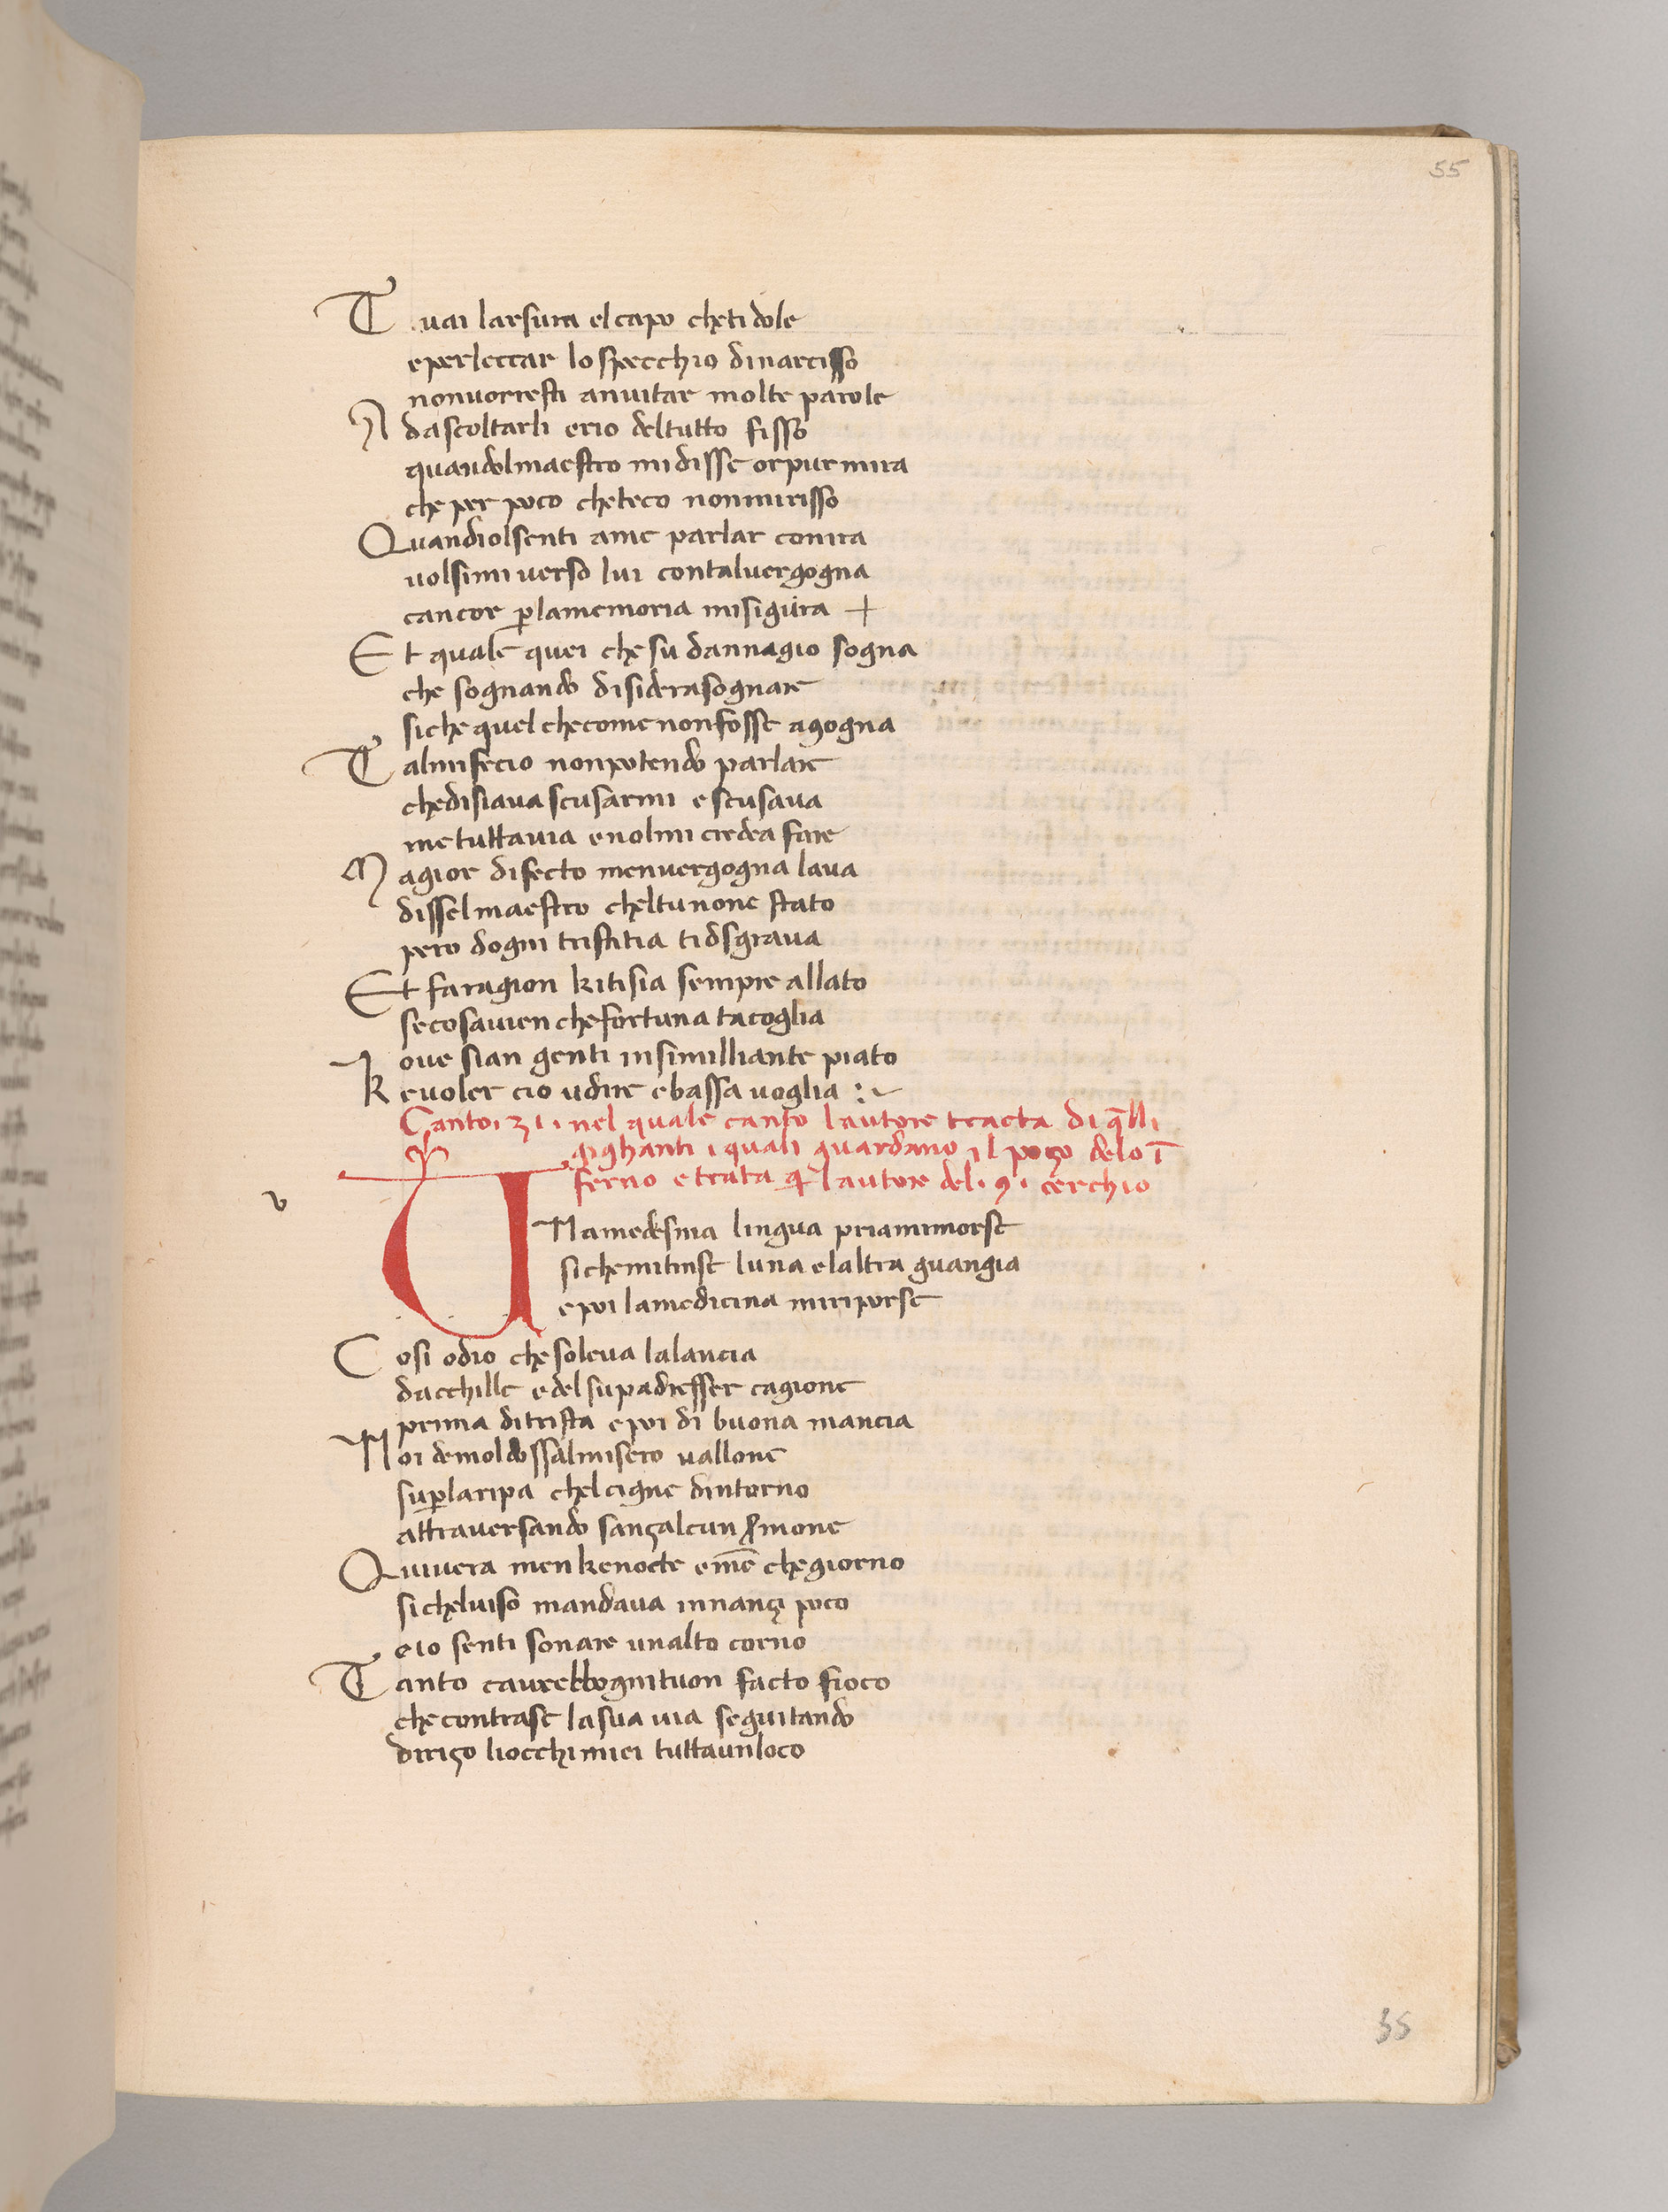 55
Tuai larsura el capo cheti dole
eperleccar lo specchio dinarcisso
nonuorresti anuitar molte parole
Ad ascoltarli erio deltutto fisso
quandolmaestro midisse orpur mira
che per poco cheteco nonmirisso
Quandiolsenti ame parlar conira
uolsimi uerso lui contaluergogna
cancor ꝑlamemoria misigira +
Et quale quei che su dannagio sogna
che sognando disiderasognare
siche quel checome nonfosse agogna
Talmifecio nonpotendo parlare
chedisiaua scusarmi e scusaua
me tuttauia enolmi credea fare
Magior difecto menuergogna laua
disselmaestro cheltunone stato
pero dogni tristitia tidsgraua
Et faragion kitisia sempre allato
secosauien chefortuna tacoglia
oue sian genti insimilliante piato
Keuoler cio udire ebassa uoglia :~
Canto · 31 · nel quale canto lautore tracta di q̄lli
gighanti i quali guardano il poço delo ī
ferno e trata q̄ lautore del · 9 · cerchio
v
UNamedesma lingua priamimorse
sichemitinse luna elaltra guangia
epoi lamedicina miriporse
Cosi odio che soleua lalancia
dacchille edel supadresser cagione
prima ditrista epoi di buona mancia
Noi demoldossalmisero uallone
suꝑlaripa chelcigne dintorno
attrauersando sançalcun s̄mone
Quiuera men kenocte em̄e chegiorno
sicheluiso mandaua innançi poco
eio senti sonare unalto corno
Tanto caurebbognituon facto fioco
checontrase lasua uia seguitando
diriço liocchi miei tuttaunloco
35